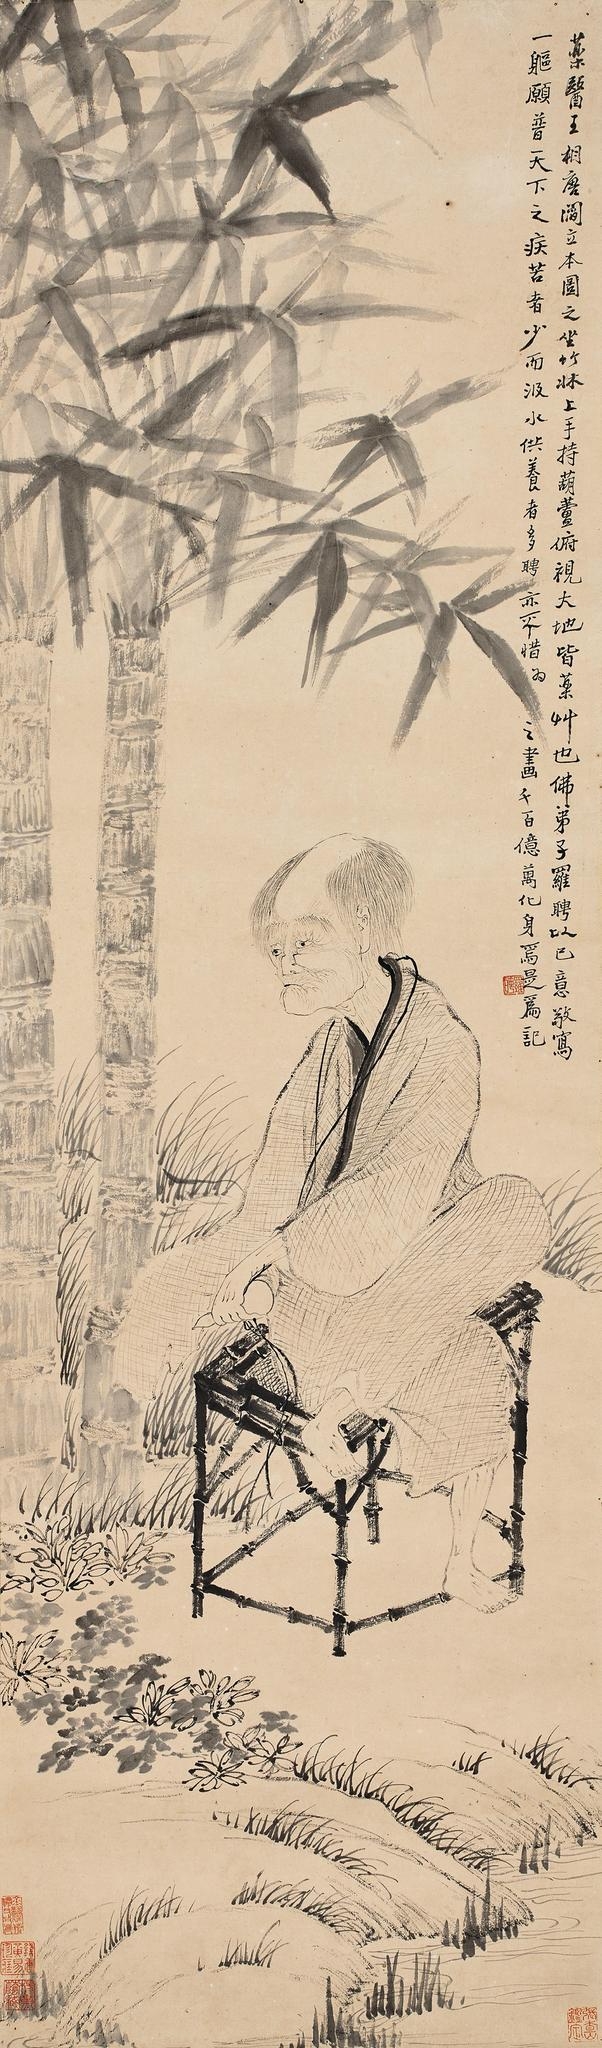 藥醫王相唐閻立本圖之坐竹牀上手持葫蘆俯視大地皆藥艸也佛弟子羅聘以己意敬寫
一軀願普天下之疾苦者少而汲水供養者多聘亦不惜為
之畫千百億萬化身焉是為記